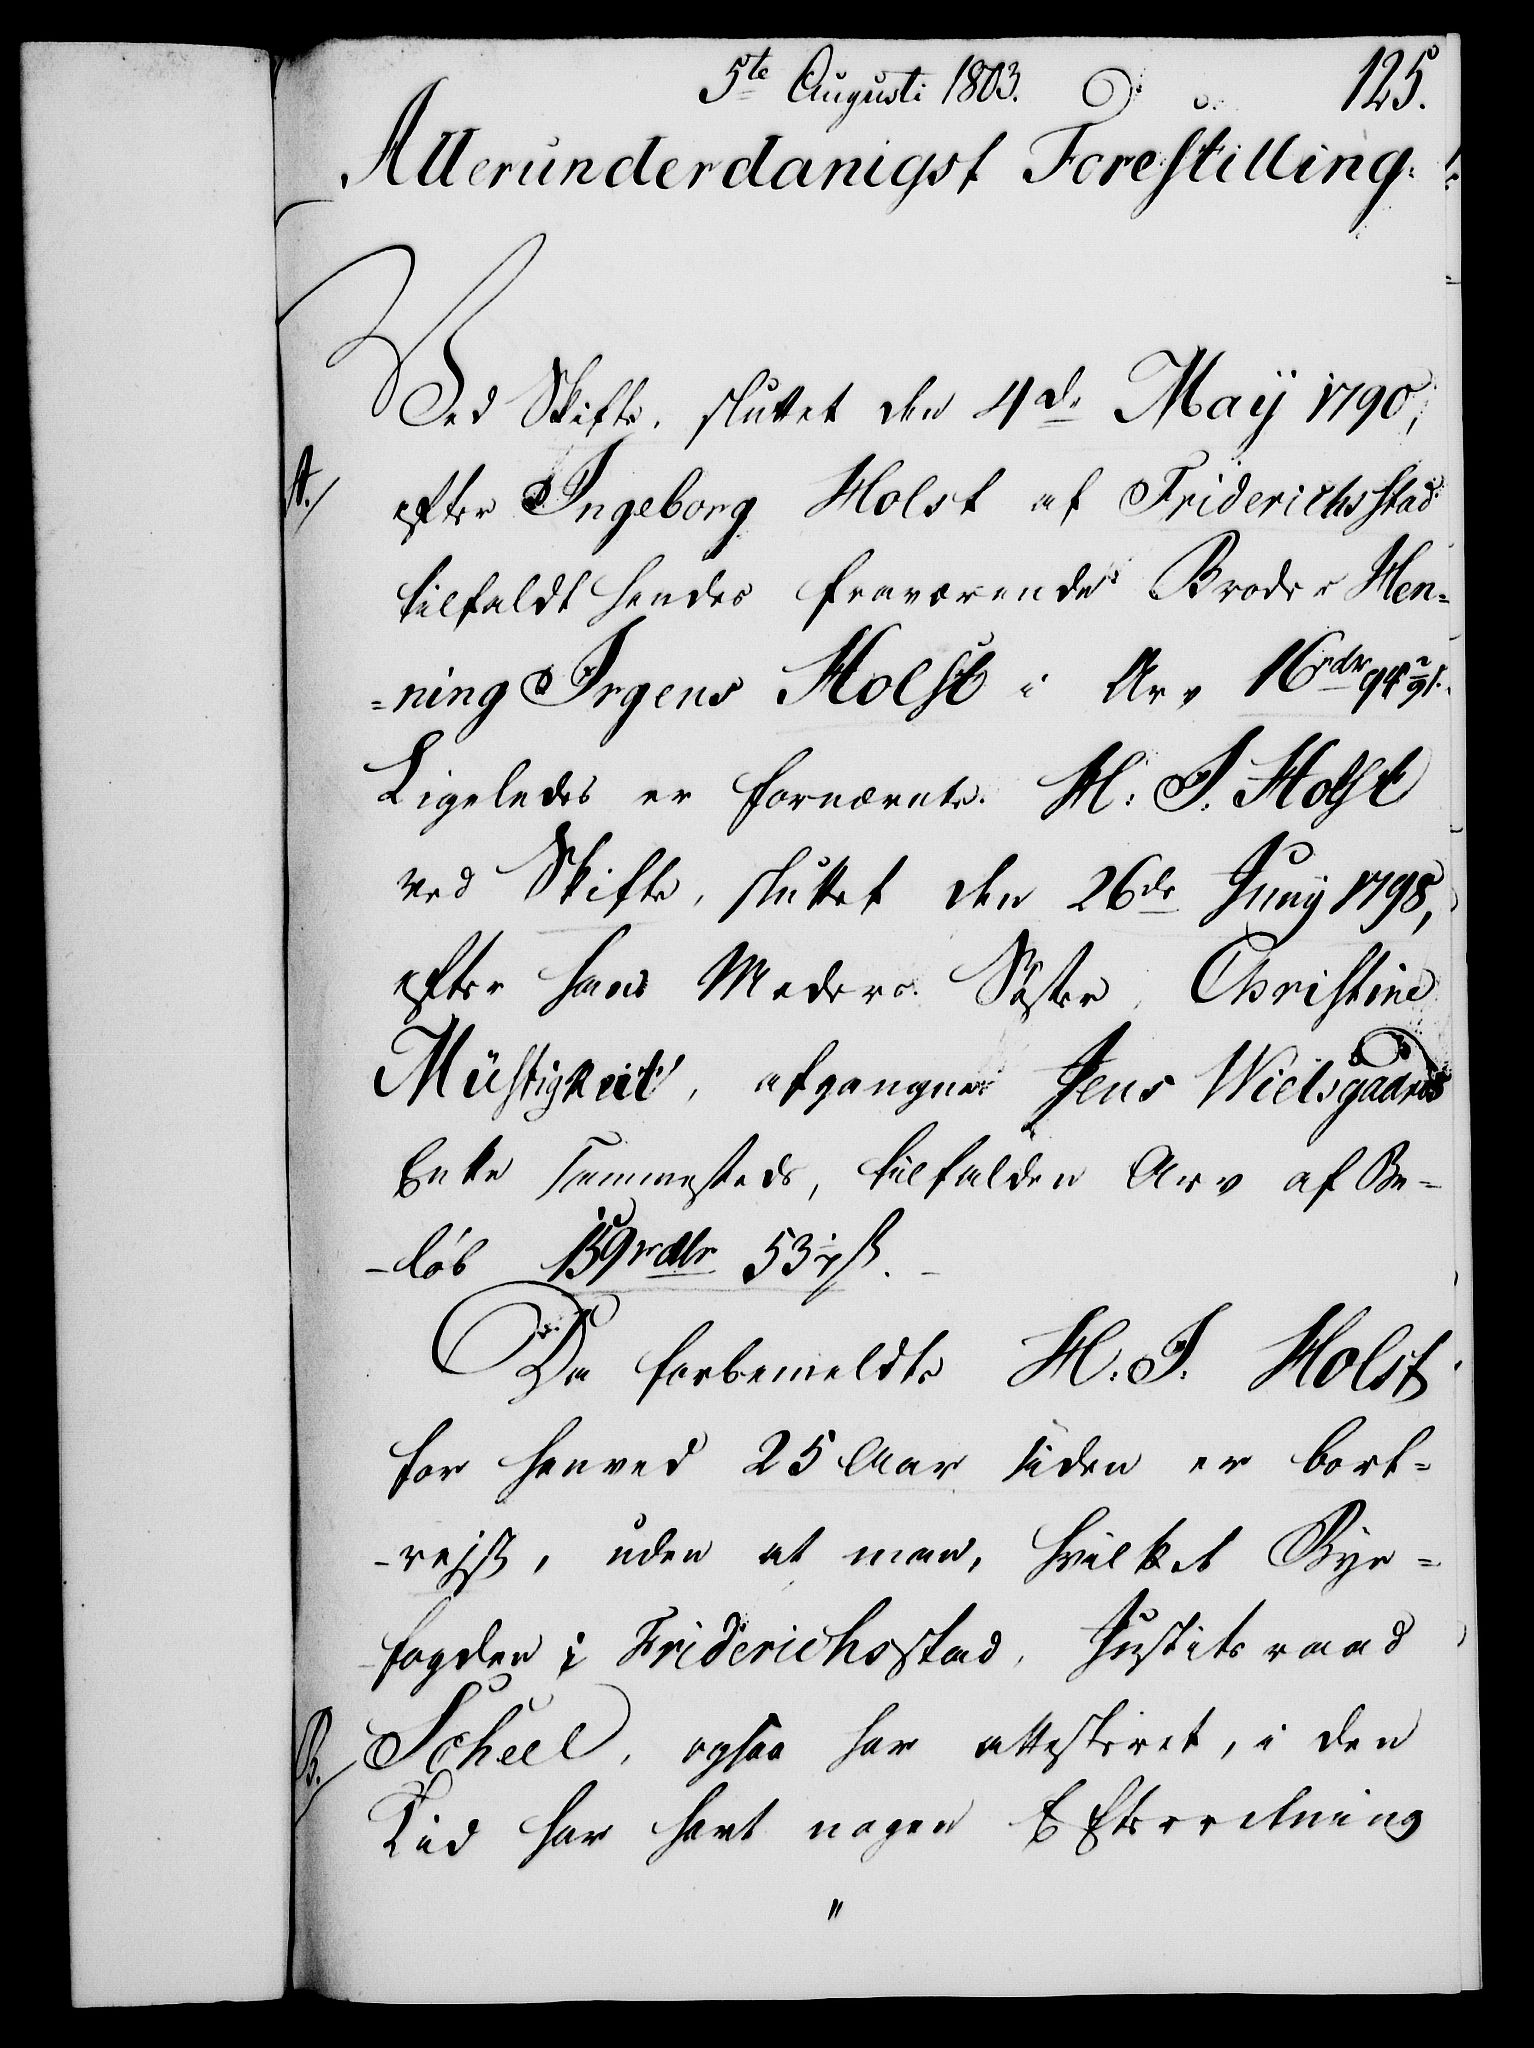 5te Augusti 1803.
125.
Allerunderdanigst Forestilling.
Ved Skifte, sluttet den 4de Maÿ 1790,
A./
efter Ingeborg Holst af Friderichsstad
tilfaldt hendes fraværende Broder Hen-
-ning Irgens Holst i Arv 16rdlr 94
Ligeledes er fornævnte H: I. Holst
ved Skifte, sluttet den 26de Junÿ 1798,
efter hans Moders Søster, Christine
afgangne Jens Wielsgaards
Enke sammesteds, tilfalden Arv af Be-
-løb 159rdlr 53½ß.
Da forbemeldte H: I: Holst
for henved 25 Aar siden er bort-
-rejst, uden at man, hvilket Bye-
fogden i Friderichsstad, Justitsraad
B./
Scheel, ogsaa har attesteret, i den
Tid har hørt nogen Efterretning
"